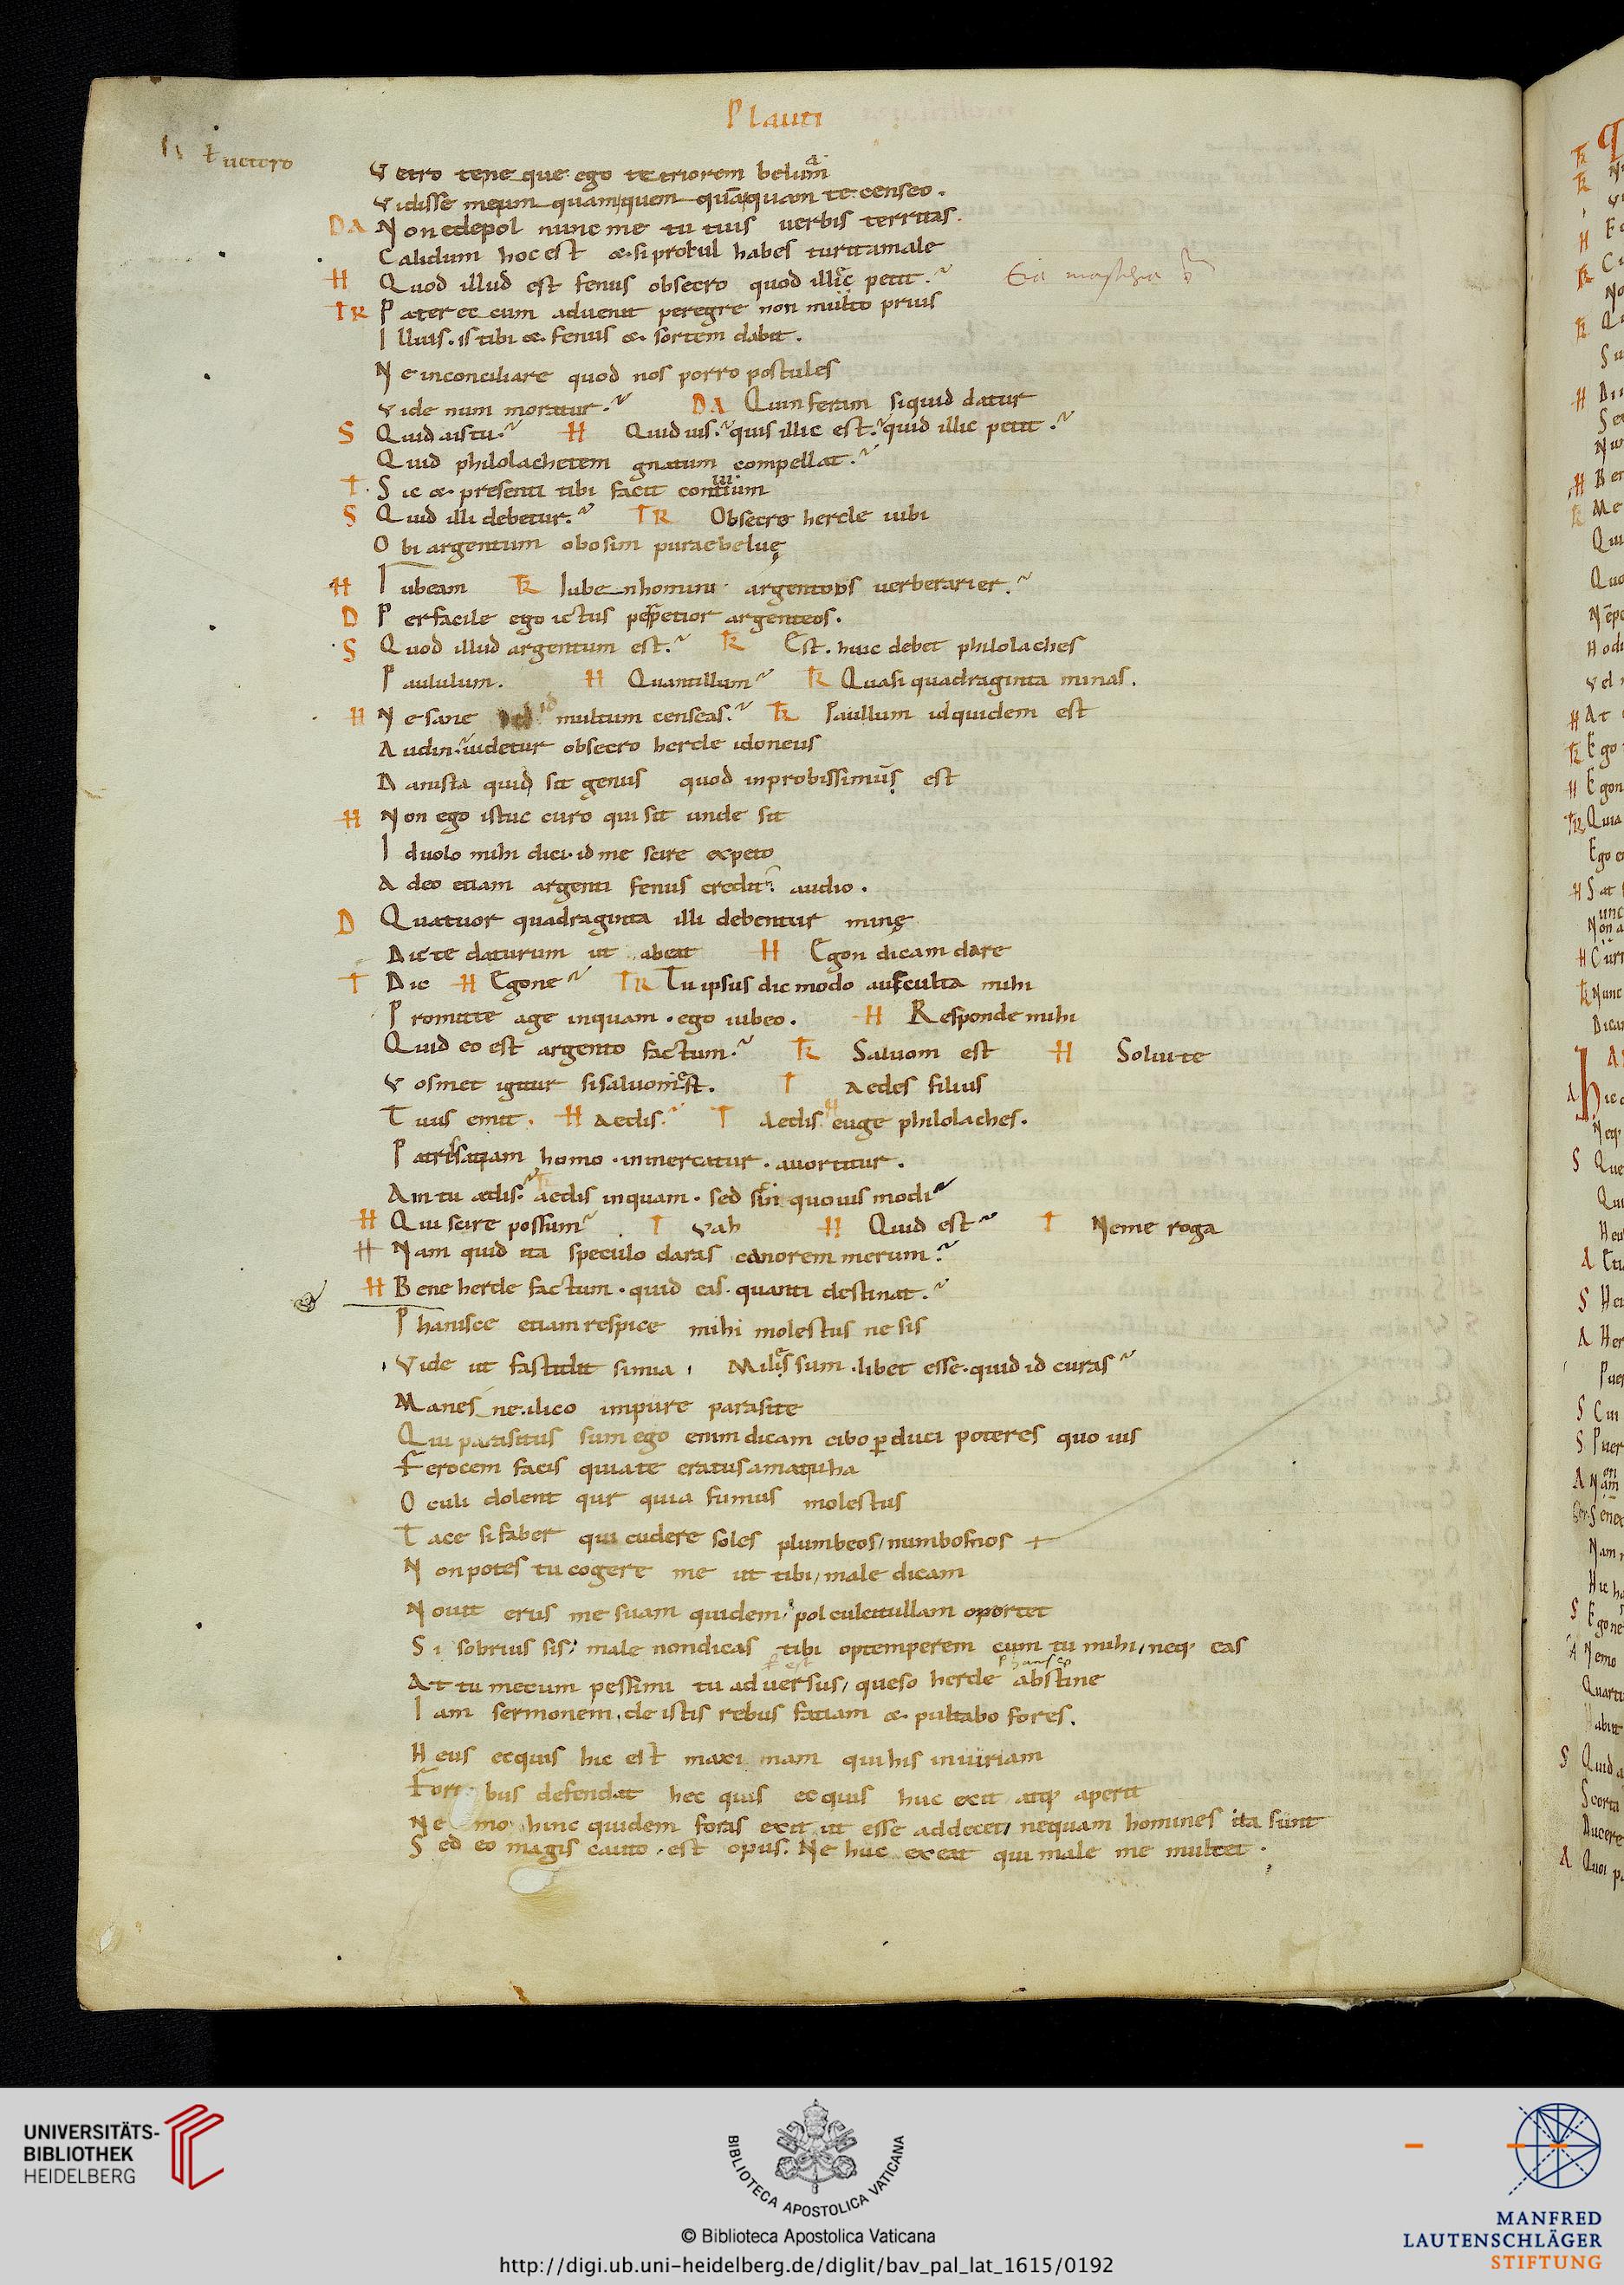 Plauti
ł uetero
Vetro tene que ego teteriorem beluam
Vidisse meum quamquem quāquam te censeo.
DA Non edepol nunc me tu tuis uerbis territas.
Calidum hoc est &. si procul habes turit male
H Quod illud est fenus obsecro quod illic petit.
TR Pater ec cum aduenit peregre non multo prius
Illius. is tibi &. fenus &. sortem dabit.
Ne inconciliare quod nos porro postules
Vide num moratur. DA Quin feram siquid datur
S Quid ais tu. H Quid uis. quis illic est. quid illic petit.
Quid philolachetem gnatum compellat.
T Sic &. presenti tibi facit conuitium
S Quid illi debetur. TR Obsecro hercle iubi
Obi argentum obosim purae beluę
H Iubeam TR Iube nhomini argento os uerberarier.
D Perfacile ego ictus perpetior argenteos.
S Quod illud argentum est. TR Est. huic debet philolaches
Paululum. H Quantillum TR Quasi quadraginta minas.
H Ne sane id multum censeas. TR Paullum id quidem est
Audin. uidetur obsecro hercle idoneus
Danista quid sit genus quod inprobissimus est
H Non ego istuc curo qui sit unde sit
Id uolo mihi dici. id me scire expeto
Adeo etiam argenti fenus credit. audio.
D Quatuor quadraginta illi debentur minę
Dic te daturum ut abeat H Egon dicam dare
T Dic H Egone TR Tu ipsus dic modo ausculta mihi
Promitte age inquam. ego iubeo. H Responde mihi
Quid eo est argento factum. TR Saluom est H Soluite
Vosmet igitur si saluom est. T Aedes filius
Tuus emit. H Aedis. T Aedis. H euge philolaches.
Patrissatiam homo. inmercatur. auortitur.
Ain tu ædis. TR aedis inquam. sed sin quouis modi
H Qui scire possum T vah H Quid est T Ne me roga
H Nam quid ita speculo claras canorem merum.
H Bene hercle factum. quid eas. quanti destinat.
Phanisce etiam respice mihi molestus ne sis
Vide ut fastidit simia. Mihi sum. libet esse. quid id curas
Manes ne. ilico impure parasite
Qui parasitus sum ego enim dicam cibo ꝑduci poteres quo uis
Ferocem facis quia te eratus amatuha
Oculi dolent qur quia fumus molestus
Tace si faber qui cudere soles plumbeos numbosnos +
Non potes tu cogere me ut tibi male dicam
Nouit erus me suam quidem pol culcitullam oportet
Si sobrius sis male non dicas tibi optemperem cum tu mihi neq; eas
At tu mecum pessimi tu aduersus queso hercle abstine
Iam sermonem de istis rebus faciam &. pultabo fores.
Heus ecquis hic est maxi mam qui his iniuriam
Fori bus defendat hec quis ecquis huc exit atq; aperit
Ne mo hinc quidem foras exit ut esse addecet nequam homines ita sunt
Sed eo magis cauto. est opus. Ne huc exeat qui male me multet.
UNIVERSITÄTS-
BIBLIOTHEK
HEIDELBERG
BIBLIOTECA APOSTOLICA VATICANA
© Biblioteca Apostolica Vaticana
http://digi.ub.uni-heidelberg.de/diglit/bav_pal_lat_1615/0192
MANFRED
LAUTENSCHLÄGER
STIFTUNG